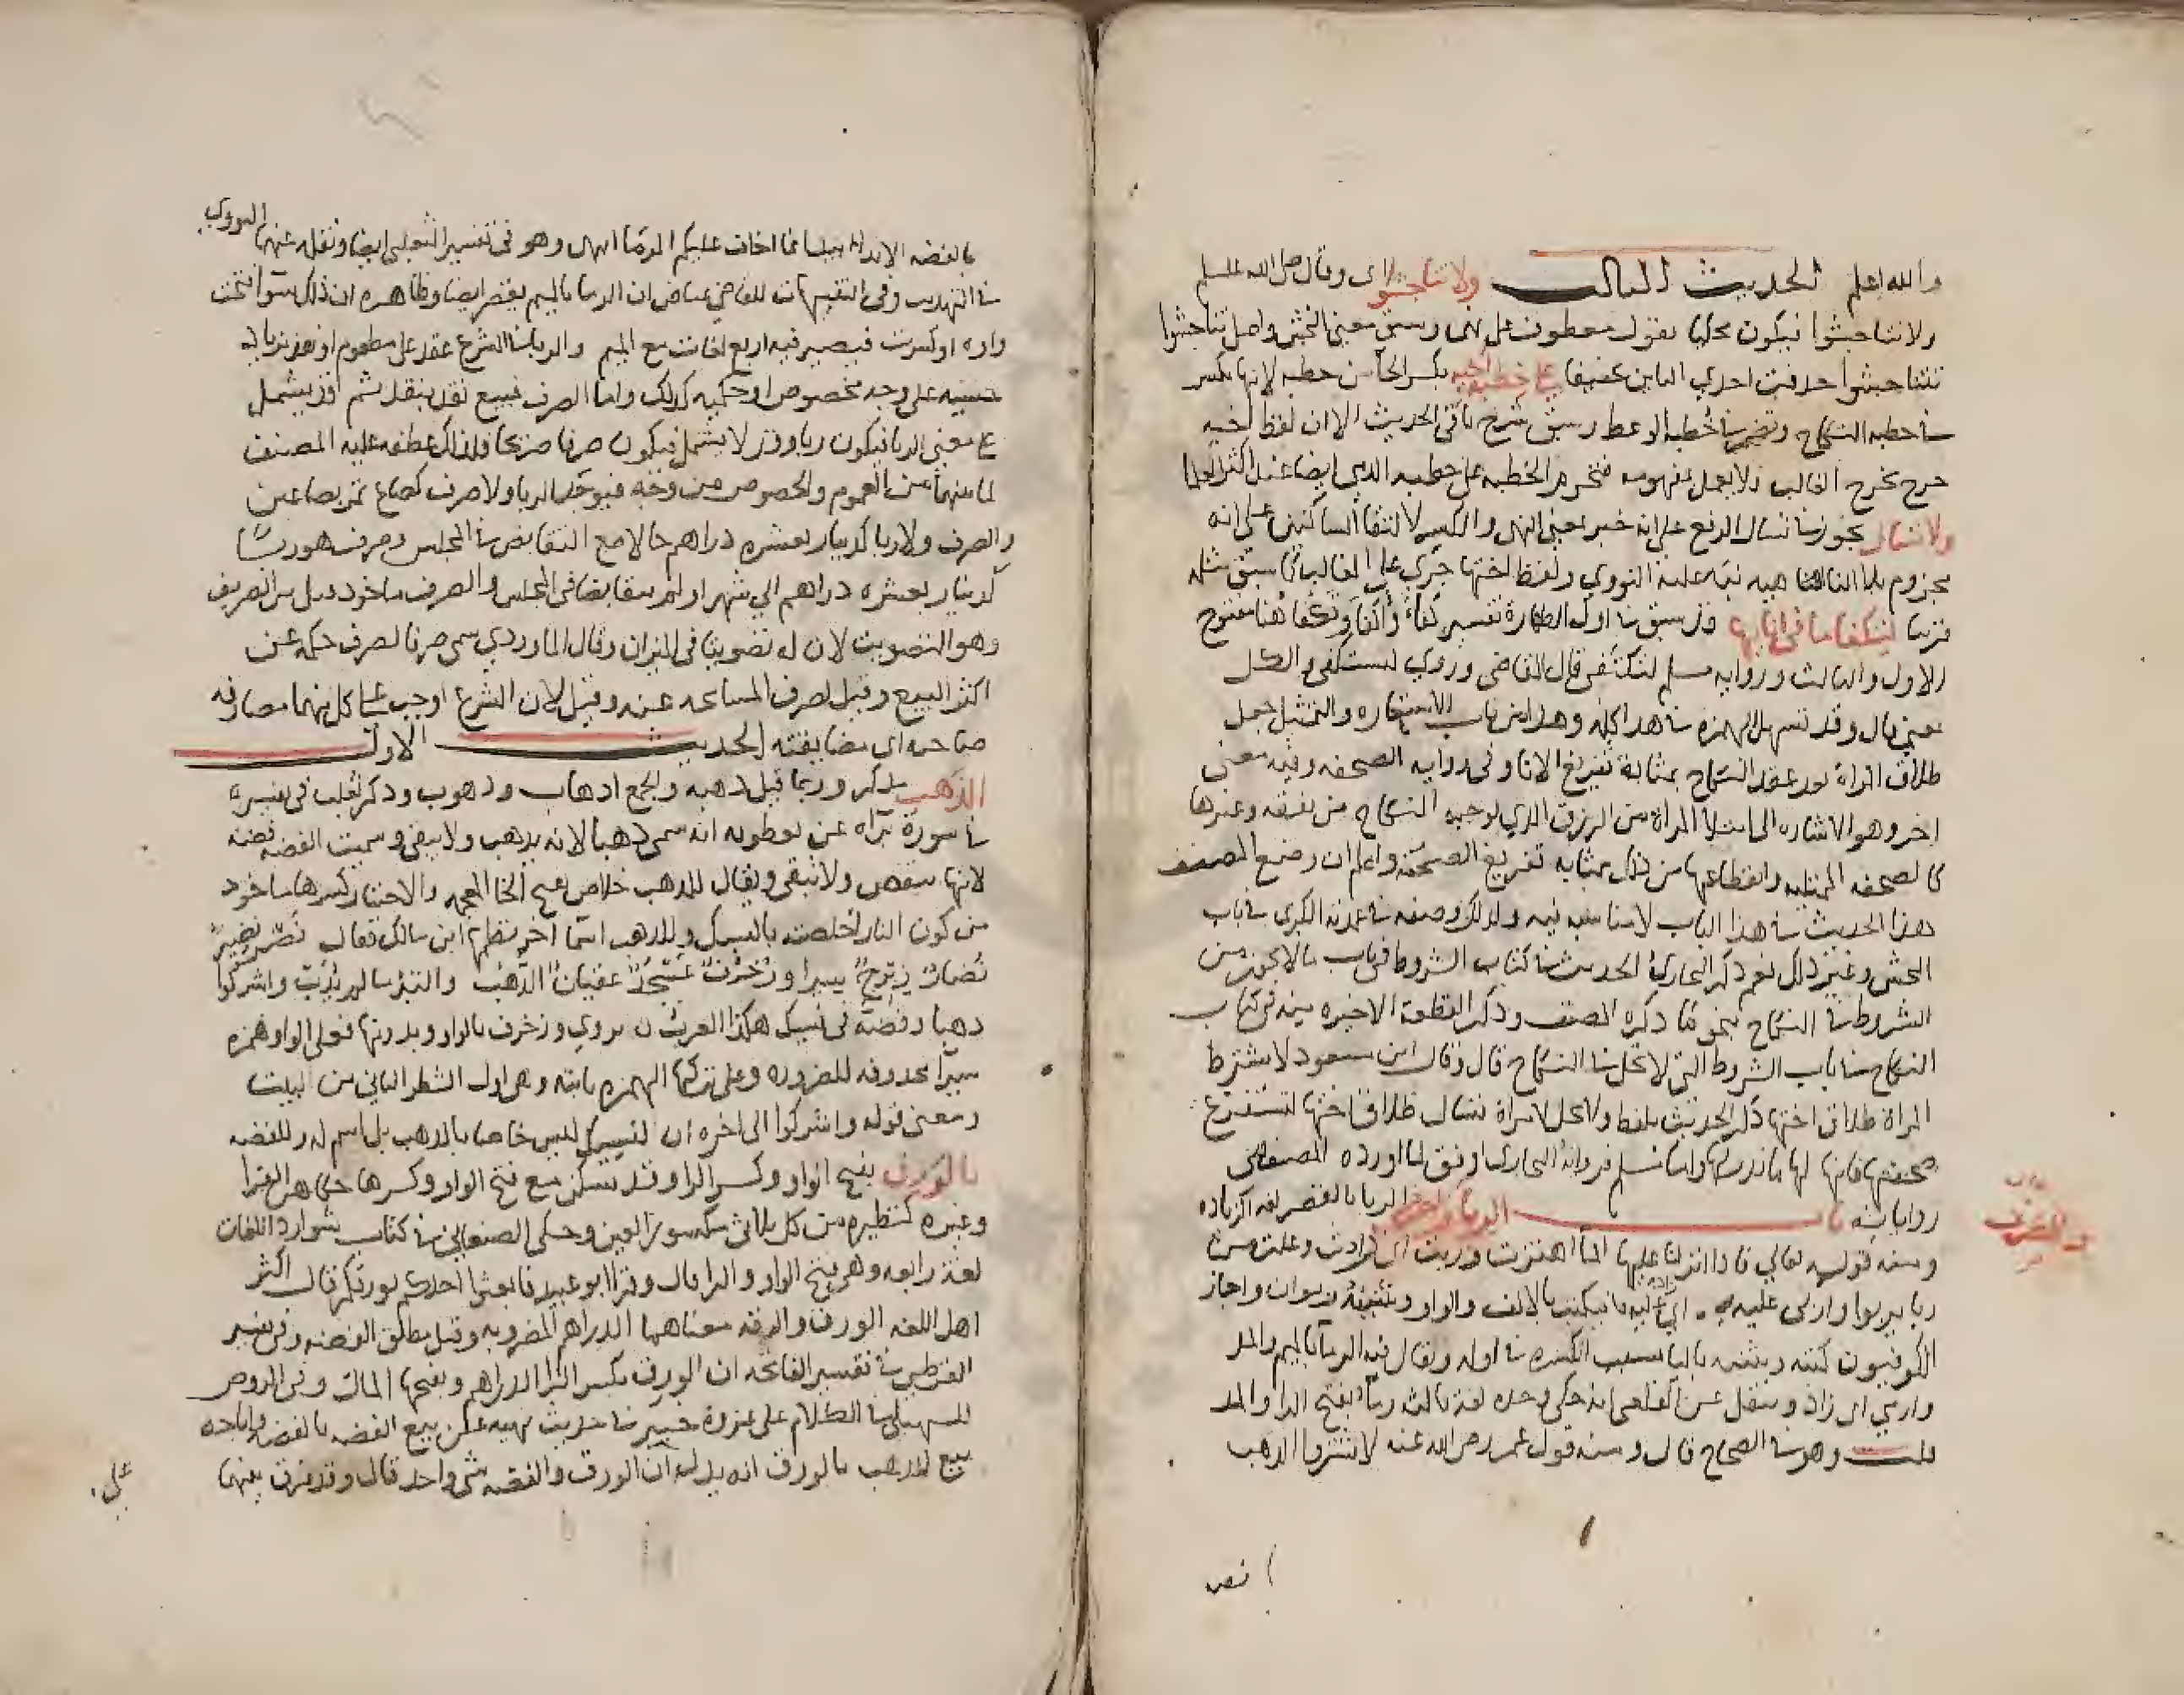 والله اعلم الحديث الثالث ولا تناجشوا اي وقال صلى الله عليه وسلم
ولا تناجشوا فيكون محكيا بقول معطوف على نهى وسبق معنى النجش واصل تناجشوا
تتناجشوا حذفت احدي التاين تخفيفا على خطبة اخيه بكسر الخا من خطبه لانها بكسر
في خطبه النكاح وتضم في خطبه الوعظ وسبق شرح باقي الحديث الا ان لفظ اخيه
خرج مخرج الغالب فلا يعمل بمفهومه فتحرم الخطبه على خطبه الذمي ايضا عند اكثر العلما
ولا تسال يجوز في تسال الرفع على انه خبر بمعنى النهي والكسر لالتقا الساكنين على انه
مجزوم بلا الناهيه نبه عليه النووي ولفظ اختها جري على الغالب كما سبق مثله
قريبا لتكفا ما في انائها وقد سبق في اول الطهارة تفسير كفاء واكفا وتكفا هنا بفتح
الاول والثالث وروايه مسلم لتكتفى قال القاضي وروي لتستكفى والكل
بمعنى قال وقد تسهل الهمزه في هذا كله وهذا من باب الاستعاره والتمثيل جعل
طلاق المراة بعد عقد النكاح بمثابة تفريغ الانا وفي روايه الصحفه وفيه معنى
اخر وهو الاشاره الى امتلا المراة من الرزق الذي يوجبه النكاح من نفقه وغيرها
كالصحفه الممتليه وانقطاعها من ذلك بمثابه تفريغ الصحفه واعلم ان وضع المصنف
هذا الحديث في هذا الباب لا مناسبه فيه ولذلك وضعه في عمدته الكبرى في باب
النجش وغير ذلك نعم ذكر البخاري الحديث في كتاب الشروط في باب ما لا يجوز من
الشروط في النكاح بنحو ما ذكره المصنف وذكر القطعة الاخيره منه في كتاب
النكاح في باب الشروط التي لا تحل في النكاح قال وقال ابن مسعود لا تشترط
المراة طلاق اختها ذكر الحديث بلفظ ولا يحل لامراة تسال طلاق اختها لتستفرغ
صحفتها فانما لها ما قدر لها واما مسلم فرواية البخاري اوفق لما اورده المصنف من
رواياته باب الربا والصرف الربا بالقصر لغة الزياده
ومنه قوله تعالي فاذا انزلنا عليها الماء اهتزت وربت اي زادت وعلت من
ربا يربوا واربى عليه اي زاد عليه فيكتب بالالف والواو وتثنيته ربوان واجاز
الكوفيون كتبه وتثنيته باليا بسبب الكسره في اوله ويقال فيه الرما بالميم والمد
واربي اي زاد ونقل عن القلعي انه حكي وحده لغة ثالثة رماء بفتح الرا والمد
قلت وهو في الصحاح قال ومنه قول عمر رضي الله عنه لا تشتروا الذهب
باب
والصرف
بالفضه الا يدا بيد اني اخاف عليكم الرما انتهى وهو في تفسير الثعلبي ايضا ونقله عنهما النووي
في التهذيب وفي التنبيهات للقاضي عياض ان الرما بالميم يقصر ايضا وظاهره ان ذلك سوا فتحت
راوه او كسرت فيصير فيه اربع لغات مع الميم والربا في الشرع عقد على مطعوم او نقد بزيادة
جنسه على وجه مخصوص او حكميه كذلك واما الصرف فبيع نقد بنقد ثم قد يشمل
على معنى الربا فيكون ربا وقد لا يشمل فيكون صرفا صحيحا فلذلك عطفه عليه المصنف
لما بينهما من العموم والخصوص من وجه فيوجد الربا ولا صرف كصاع تمر بصاعين
والصرف ولا ربا كدينار بعشره دراهم حالا مع التقابض في المجلس وصرف هو ربا
كدينار بعشره دراهم الي شهر او لم يتقابضا في المجلس والصرف ماخوذ قيل من الصريف
وهو التصويت لان له تصويتا في الميزان وقال الماوردي سمي صرفا لصرف حكمه عن
اكثر البيع وقيل لصرف المسامحه عنه وقيل لان الشرع اوجب على كل منهما مصارفه
صاحبه اي مضايقته الحديث الاول
الذهب يذكر وربما قيل ذهبه والجمع اذهاب وذهوب وذكر الثعلبي في تفسيره
في سورة براه عن نفطويه انه سمي ذهبا لانه يذهب ولا يبقى وسميت الفضه فضه
لانها تنفض ولا تبقى ويقال للذهب خلاص بفتح الخا المعجمه والاختيار كسرها ماخوذ
من كون النار اخلصته بالسبك وللذهب اسما اخر نظمها ابن مالك فقال نضر نضير
نضار زبرج سيرا وزخرف عسجد عقيان الذهب والتبر ما لم يذب واشركوا
ذهبا وفضة في نسيك هكذا العرب ن يروي وزخرف بالواو وبدونها فعلى الواو همزه
سيراً محذوفه للضروره وعلى تركها الهمزه ثابته وهي اول الشطر الثاني من البيت
ومعنى قوله واشركوا الى اخره ان النسيك ليس خاصا بالذهب بل اسم له وللفضه
بالورق بفتح الواو وكسر الرا وقد تسكن مع فتح الواو وكسرها حكاهن الفرا
وغيره كنظيره من كل ثلاثي مكسور العين وحكى الصغاني في كتاب شوارد اللغات
لغة رابعه وهي فتح الواو والرا قال وقرا ابو عبيد فابعثوا احدكم بورقكم قال اكثر
اهل اللغه الورق والرقه معناهما الدراهم المضروبه وقيل مطلق الفضه وفي تفسير
القرطبي في تفسير الفاتحه ان الورق بكسر الرا الدراهم وبفتحها المال وفي الروض
للسهيلي في الكلام على غزوة خيبر في حديث نهيه عن بيع الفضه بالفضه واباحه
بيع الذهب بالورق انه يدل ان الورق والفضه شي واحد قال وقد فرق بينهما